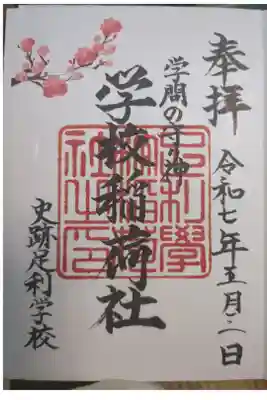 奉拝
令和七年五月二日
学問の守り神
学校稲荷社
史跡足利学校
足利學
社之印